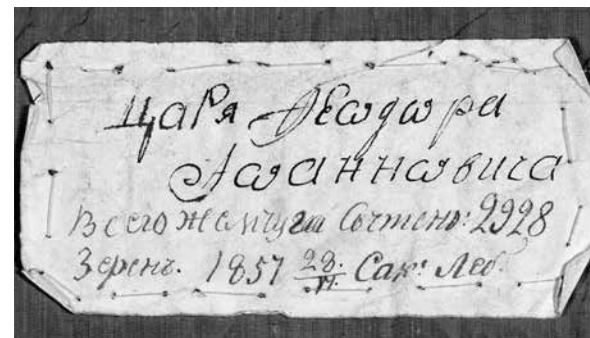 Царя Ѳеѡдѡра
Іѡаннѡвича
Всего жемчуга Сочтено: 2928
Зеренъ. 1857 28/VI. Сак: Леб.